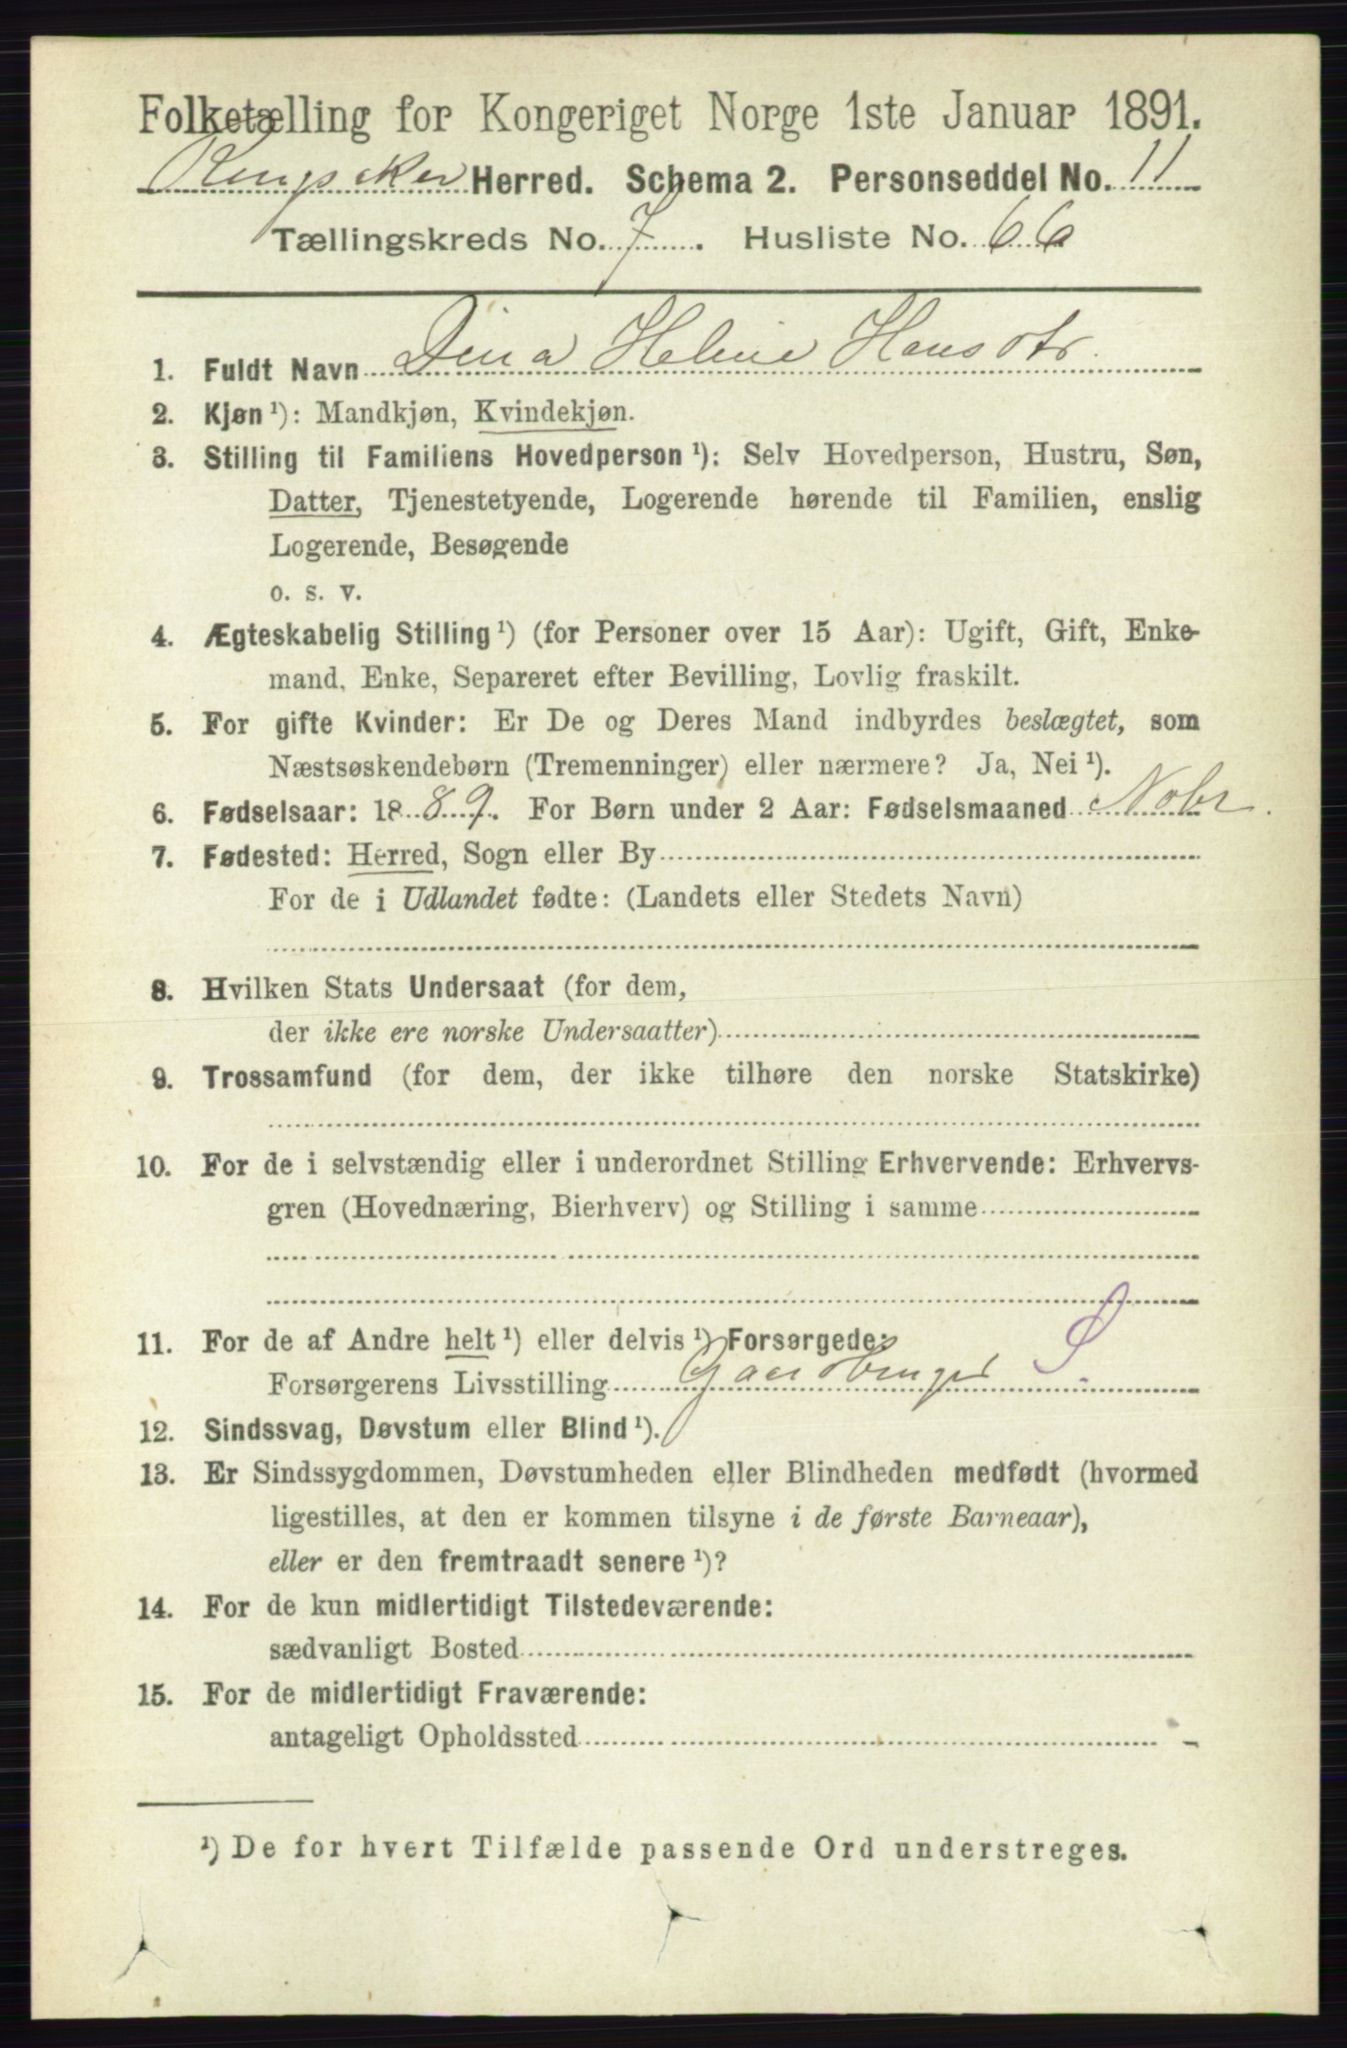 Folketælling for Kongeriget Norge 1ste Januar 1891.
Ringsaker Herred. Schema 2. Personseddel No. 11
Tællingskreds No. 7. Husliste No. 66
1. Fuldt Navn Dina Heline Hansdtr.
2. Kjøn ¹): Mandkjøn, Kvindekjøn.
3. Stilling til Familiens Hovedperson ¹): Selv Hovedperson, Hustru, Søn,
Datter, Tjenestetyende, Logerende hørende til Familien, enslig
Logerende, Besøgende
o. s. v.
4. Ægteskabelig Stilling ¹) (for Personer over 15 Aar): Ugift, Gift, Enke-
mand, Enke, Separeret efter Bevilling, Lovlig fraskilt.
5. For gifte Kvinder: Er De og Deres Mand indbyrdes beslægtet, som
Næstsøskendebørn (Tremenninger) eller nærmere? Ja, Nei ¹).
6. Fødselsaar: 1889. For Børn under 2 Aar: Fødselsmaaned Novbr.
7. Fødested: Herred, Sogn eller By
For de i Udlandet fødte: (Landets eller Stedets Navn)
8. Hvilken Stats Undersaat (for dem,
der ikke ere norske Undersaatter)
9. Trossamfund (for dem, der ikke tilhøre den norske Statskirke)
10. For de i selvstændig eller i underordnet Stilling Erhvervende: Erhvervs-
gren (Hovednæring, Bierhverv) og Stilling i samme
11. For de af Andre helt ¹) eller delvis ¹) Forsørgede:
Forsørgerens Livsstilling Gaardbruger S.
12. Sindssvag, Døvstum eller Blind ¹).
13. Er Sindssygdommen, Døvstumheden eller Blindheden medfødt (hvormed
ligestilles, at den er kommen tilsyne i de første Barneaar),
eller er den fremtraadt senere ¹)?
14. For de kun midlertidigt Tilstedeværende:
sædvanligt Bosted
15. For de midlertidigt Fraværende:
antageligt Opholdssted
¹) De for hvert Tilfælde passende Ord understreges.